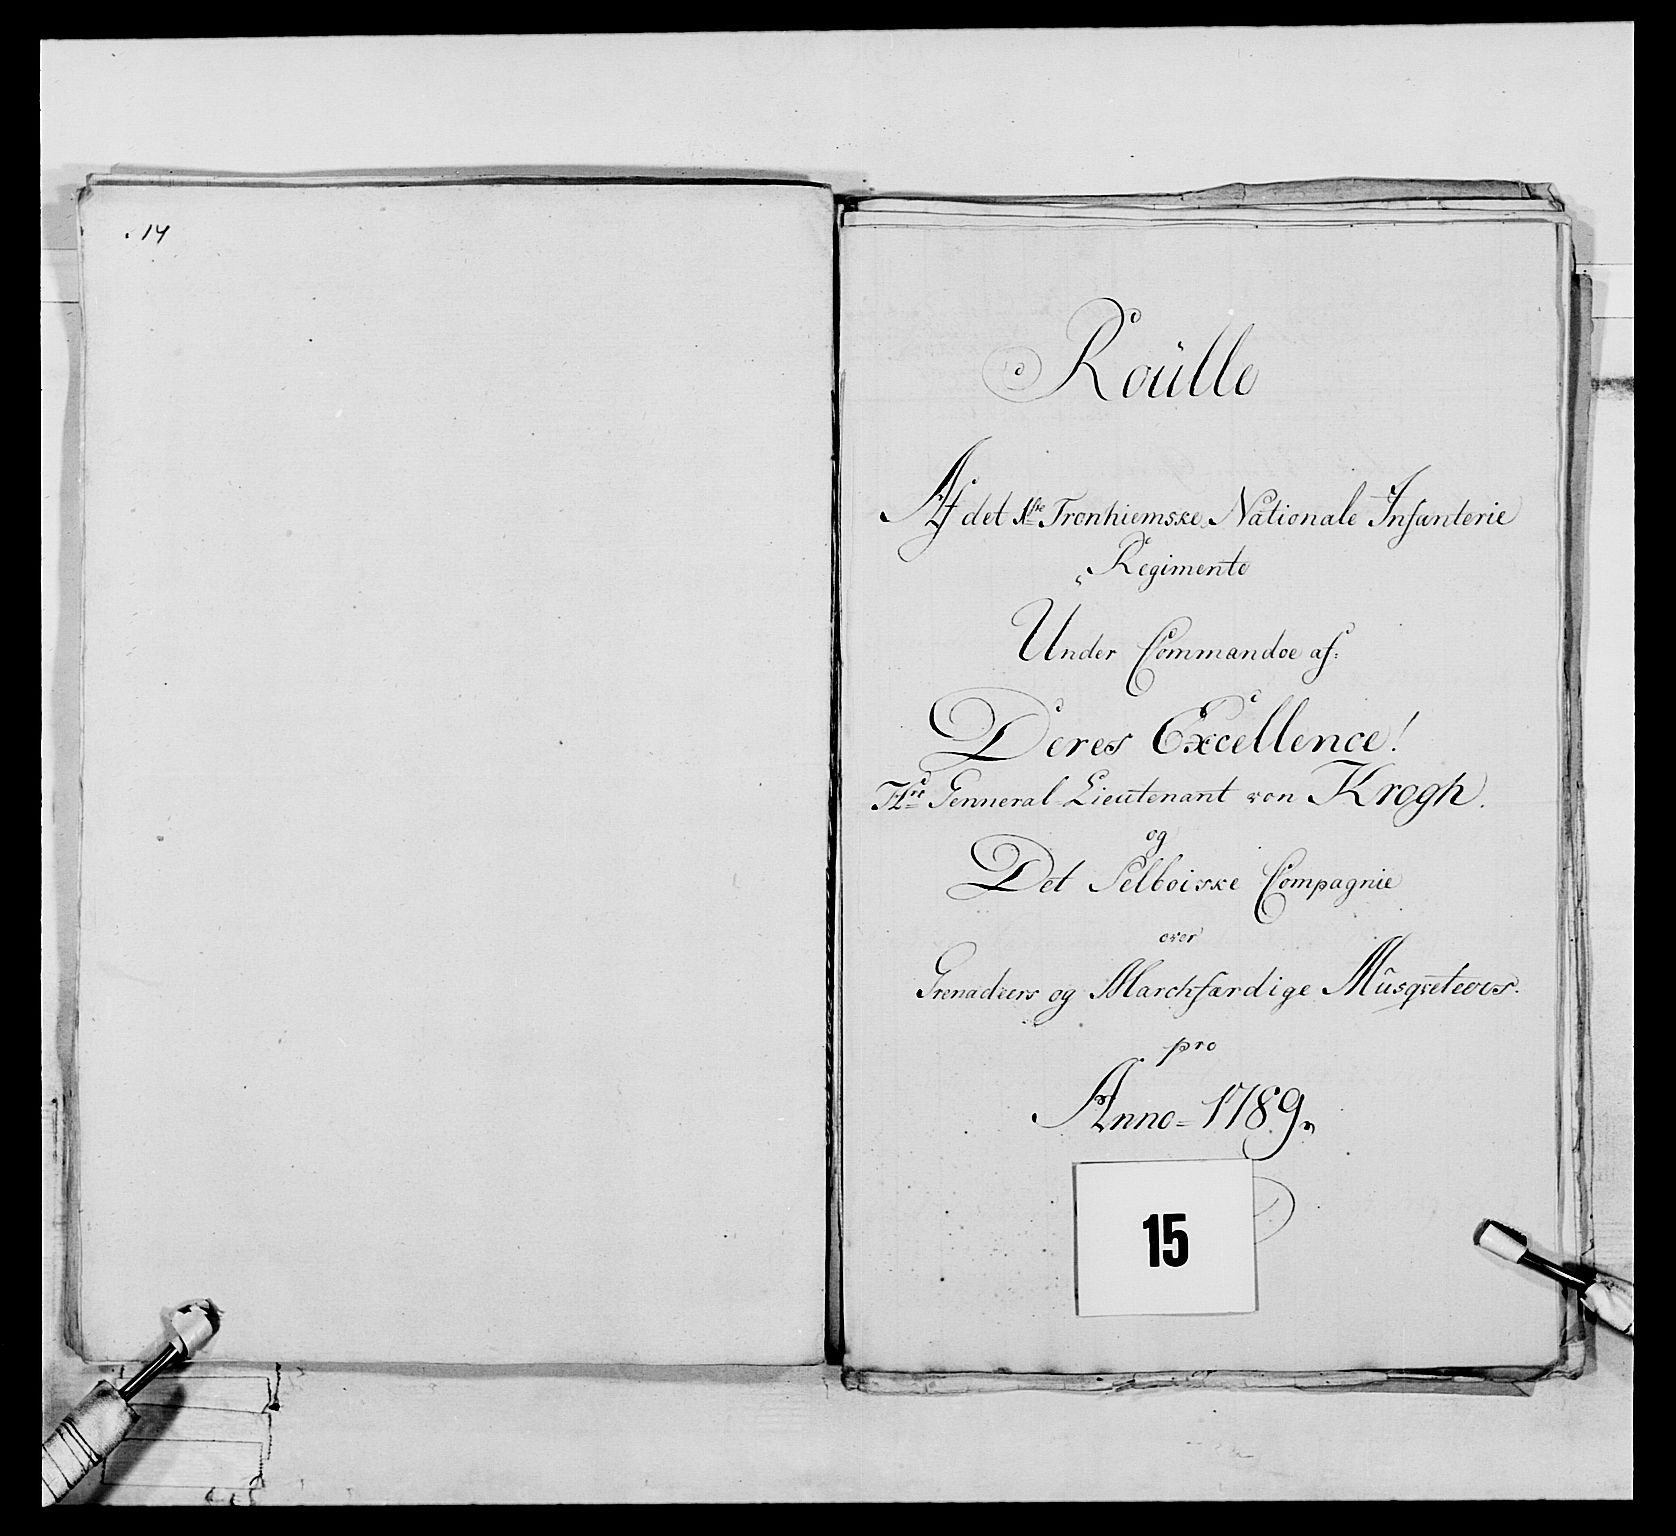 14
Roülle
Af det 1ste Tronhiemske Nationale Infanterie
Regimente
Under Commandoe af:
Deres Excellence!
Hrr Genneral-Lieutenant von Krogh.
og
Det Selboiske Compagnie
over
Grenadeers og Marchfærdige Müsqveteers.
pro
Anno = 1789
15